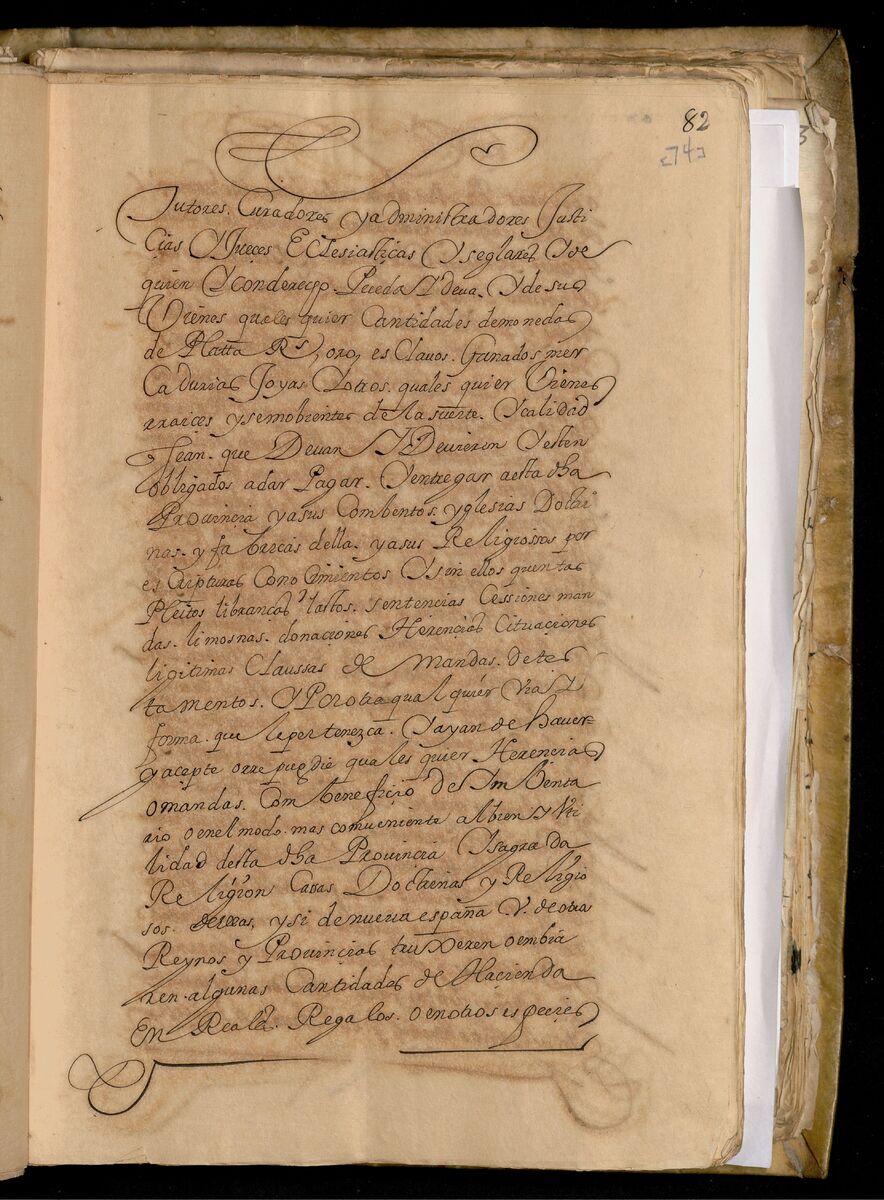 82
[74]
Tutores. Curadores y adminitradores Justi
cias Y Jueçes Eclesiasticas Y seglares Y de
quien Y conderecgo. Pueda Y deva. Y de sus
Vienes quales quier Cantidades de monedas
de Platta Rs, oro, esClavos. Ganados mer
Cadurias Joyas Y otros. quales quier Vienes
rraices y semobientes de la suerte. Y calidad
sean. que Devan Y Devieren Y esten
obligados a dar Pagar. Y entregar a esta dha
Provinçia y a sus Combentos. y glesias Doctri
nas. y fabricas della. y a sus Religiossos por
escripturas Conocimientos Y sin ellos quentas
Pleitos libranças y lastos. sentencias Cessiones man
das. limosnas. donaçiones Herencias Cituaçiones
ligitimas Claussas de mandas. de tes
tamentos. Y Por otra qual quier Via Y
forma. que le pertenezca. Y ayan de haver
y acepte o rrepudie quales quier Herencias
o mandas. Com beneficio de Imbenta
rio o en el modo. mas comveniente al bien Y Vti
lidad desta dha Provinçia Y sagrada
Religion Cassas Doctrinas y Religio
sos. dellas, y si de nueva españa V. de otros
Reynos y Provinçias truxeren o embia
ren. algunas Cantidades de Haçienda
En Reales. Regalos. o en otros espeçies